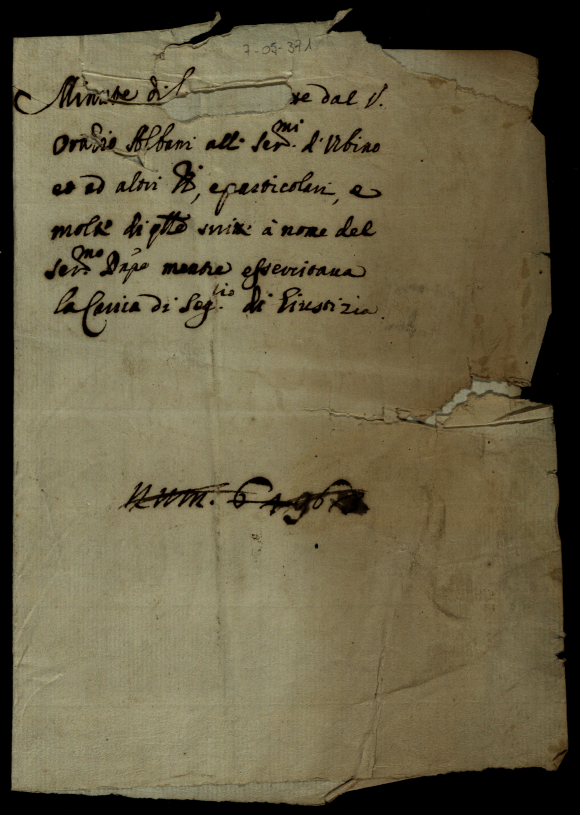 7-05-371
Minute di l re dal S.
Orazio Albani alli Ser.mi d'Urbino
et ad altri P̃i, e particolari, e
molte di q̃lle scritte à nome del
Ser.mo Duca mentre essercitaua
la Carica di Seg.rio di Giustizia.
Num. 6